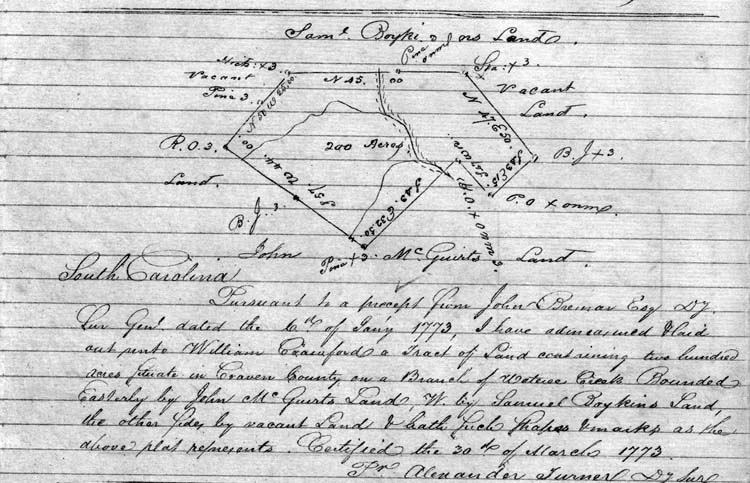 Sam.l Boyki & ors Land.
Pine onm
Hick: x3.
Sta: x 3.
Vacant
N 45.
00
Vacant
Pine 3
Land.
R. O. 3.
200 Acres
B. J x 3.
Land.
P. O x onm.
B. J. 3.
S 57 W 44.
S 43 E 32.50
R. O. x onm 3.
Pine x 3.
John Mc Guirts Land.
South Carolina
Pursuant to a precept from John Bremar Esq Dy.
Sur Genl. dated the 6th of Jany 1773, I have admeasured & laid
out unto William Crawford a Tract of Land containing two hundred
acres situate in Craven County on a Branch of Wateree Creek Bounded
Easterly by John Mc Guirts Land, W. by Samuel Boykins Land,
the other sides by vacant Land & hath such shapes & marks as the
above plat represents. Certified the 20th of March 1773.
Pr. Alexander Turner Dy Sur